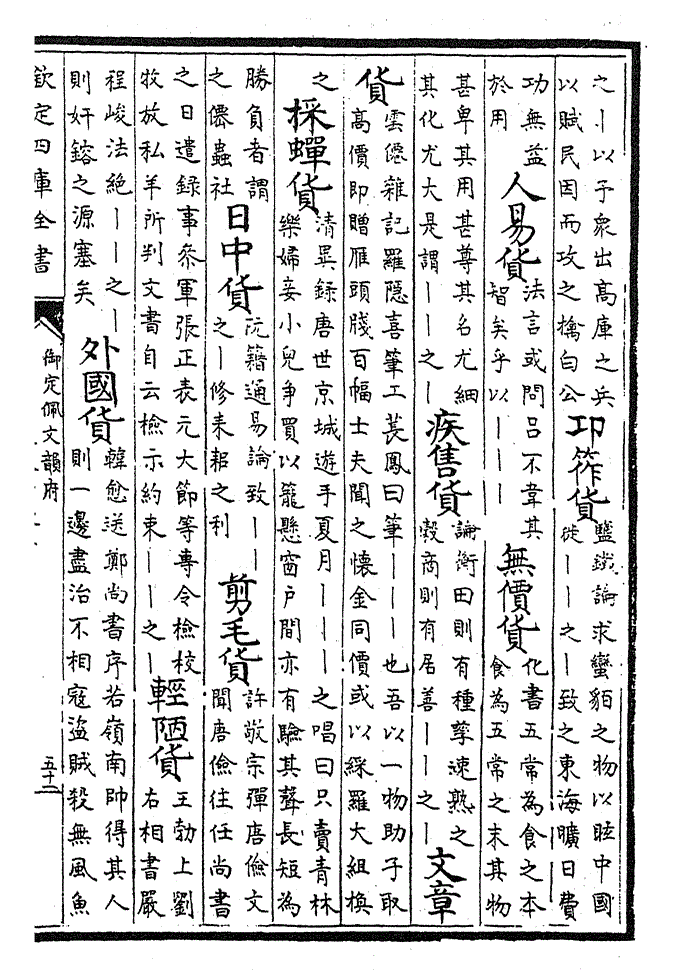 之丨以予衆出高庫之兵
以賦民因而攻之擒白公
卭筰貨
鹽鐵論求蠻貊之物以眩中國
徙丨丨之丨致之東海曠日費
功無益
於用
人易貨
法言或問吕不韋其
智矣乎以丨丨丨
無價貨
化書五常為食之本
食為五常之末其物
甚卑其用甚尊其名尤細
其化尤大是謂丨丨之丨
疾售貨
論衡田則有種孳速熟之
榖商則有居善丨丨之丨
文章
貨
雲僊雜記羅隱喜筆工萇鳳曰筆丨丨丨也吾以一物助子取
高價即贈雁頭牋百幅士夫聞之懷金同價或以綵羅大組換
之
採蟬貨
清異錄唐世京城遊手夏月丨丨丨之唱曰只賣青林
樂婦妾小兒争買以籠懸窗戸間亦有驗其聲長短為
勝負者謂
之僊蟲社
日中貨
阮籍通易論致丨丨
之丨修耒耜之利
剪毛貨
許敬宗彈唐儉文
聞唐儉往任尚書
之日遣録事叅軍張正表元大節等專令檢校
牧放私羊所判文書自云檢示約束丨丨之丨
輕陋貨
王勃上劉
右相書嚴
程峻法絶丨丨之丨
則奸鎔之源塞矣
外國貨
韓愈送鄭尚書序若嶺南帥得其人
則一邊盡治不相寇盜賊殺無風魚
欽定四庫全書
御定佩文韻府
五十二